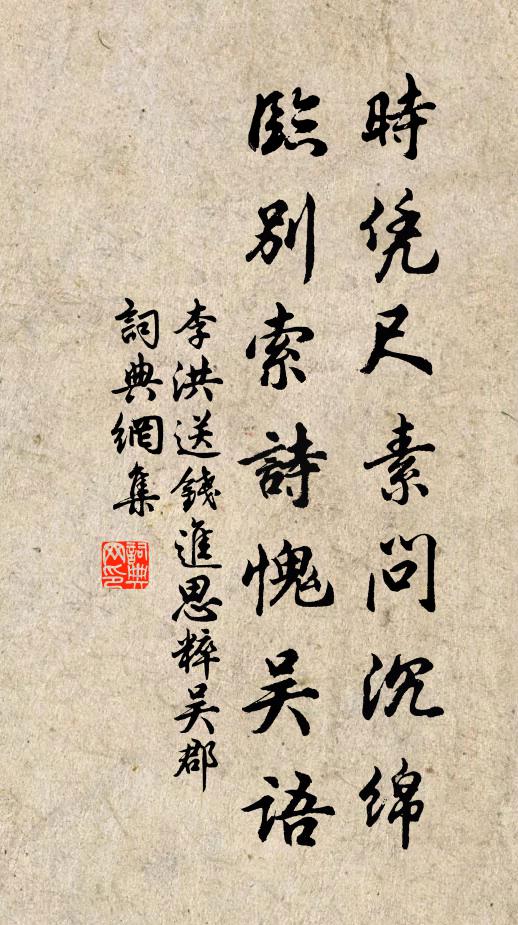 時凭尺素問沉绵
臨別索詩愧吴語
李洪送錢進思粹吴郡
詞典網集
詞典
网印